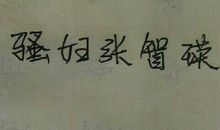 骚妇张智瑛